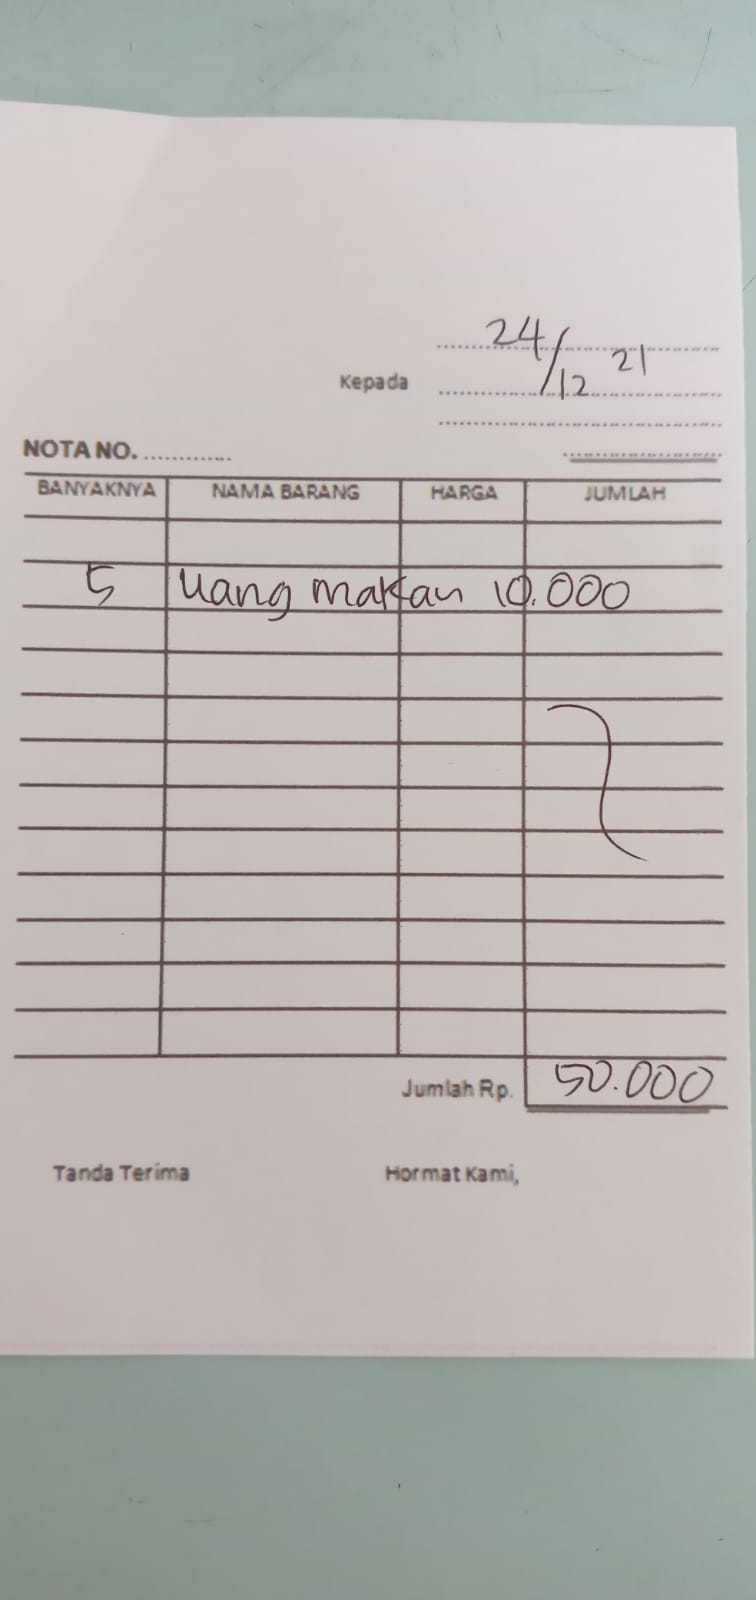 24/12 21
Kepada
NOTA NO. .............
BANYAKNYA NAMA BARANG HARGA JUMLAH
5 Uang makan 10.000
Jumlah Rp. 50.000
Tanda Terima Hormat Kami,